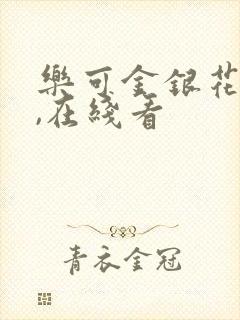 樂可金銀花
,在綫看
青衣金冠